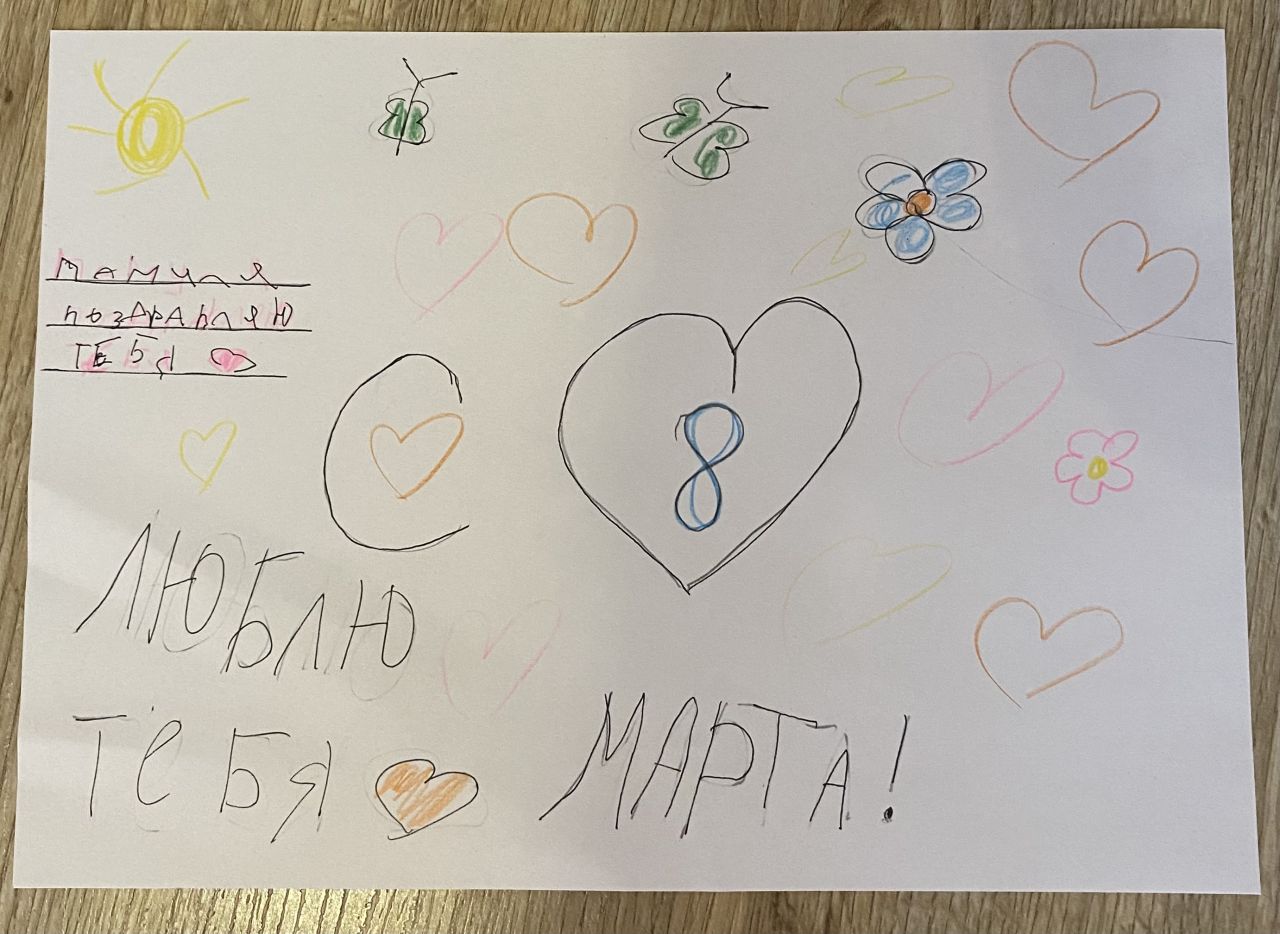 Мамуля
позАрАвляЮ
ТЕБЯ
С 8
ЛЮБЛЮ
ТеБЯ
МАРТА!